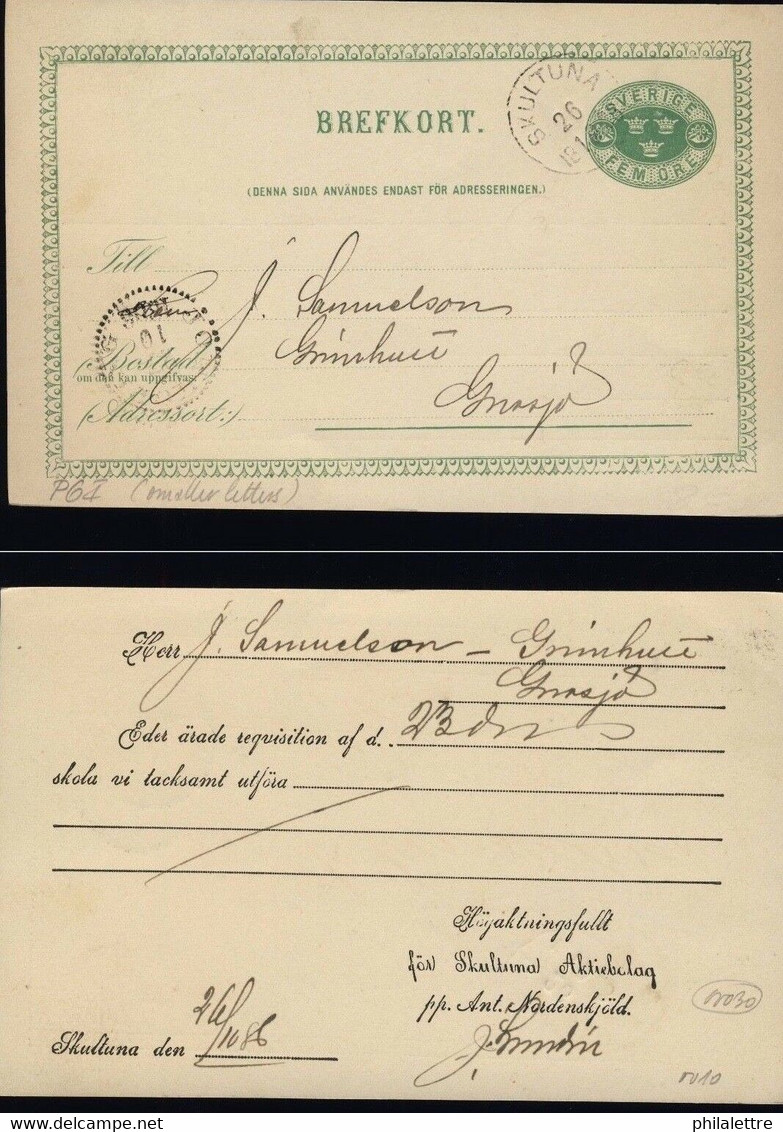 BREFKORT.
SKULTUNA
26
SVERIGE
FEM ÖRE
(DENNA SIDA ANVÄNDES ENDAST FÖR ADRESSERINGEN.)
Till
J. Samuelson
Grimhult
(Bostad
om den kan uppgifvas:
(Adressort:)
Gnosjö
PGI (smaller letters)
Herr J. Samuelson – Grimhult
Gnosjö
Eder ärade reqvisition af d. 23 dn
skola vi tacksamt utföra
Högaktningsfullt
för Skultuna Aktiebolag
pp. Ant. Nordenskjöld.
Skultuna den 26/10 86
philalettre